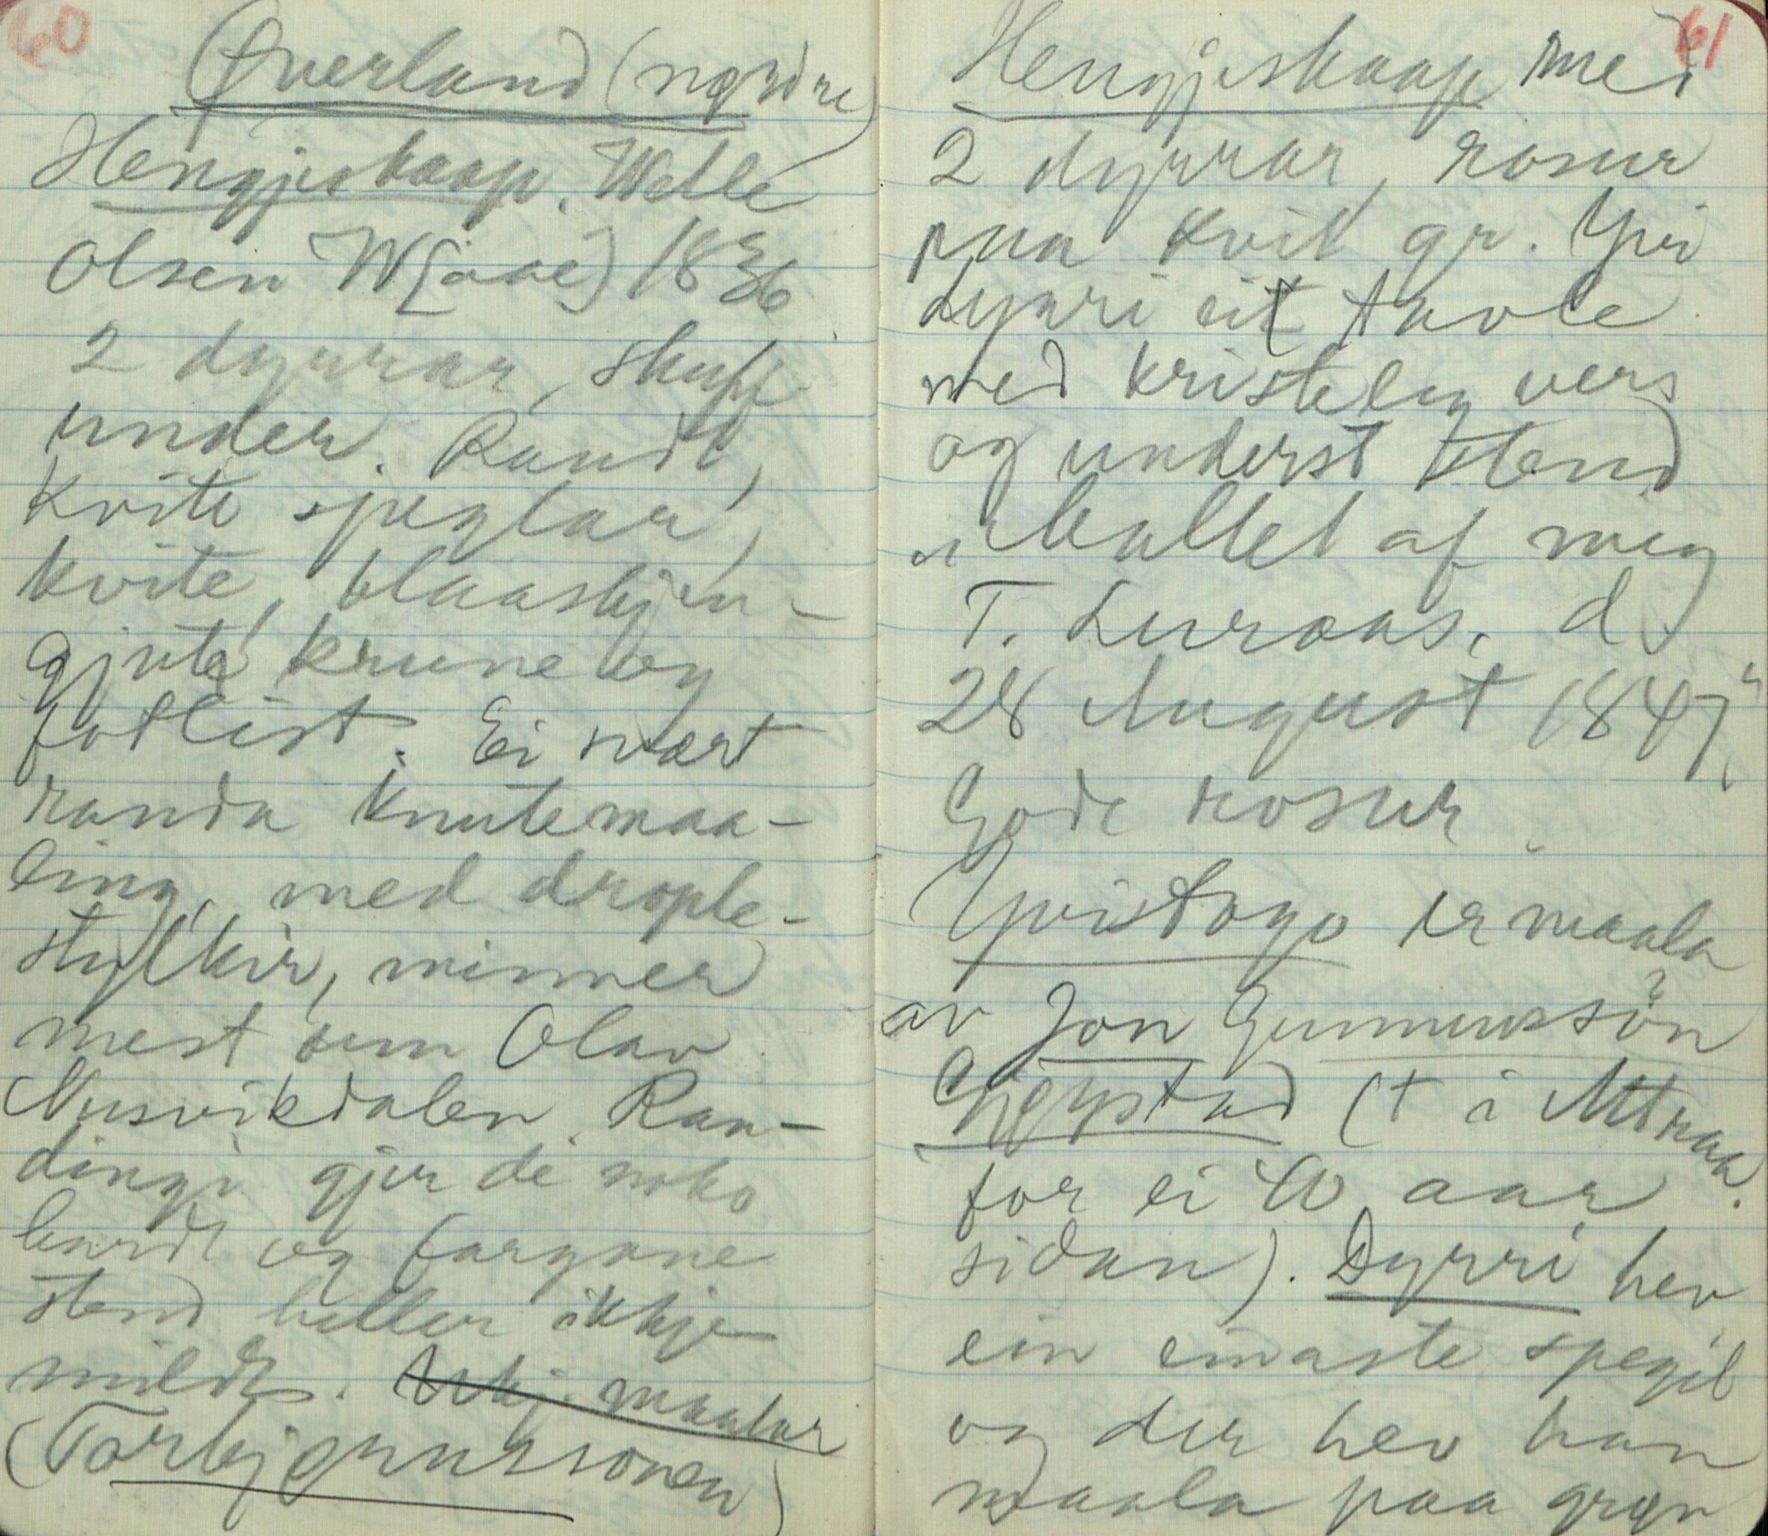 60
Øverland (nørdre)
Hengjeskaap. Velle
Olsen W[aae] 1836
2 dyrrar, skuff
under. Raudt,
kvite speglar,
kvite, blaaskjen-
gjute krune og
fotlist. Ei svært
randa knutemaa-
ling, med drople-
stylkir, minner
mest um Olav
Nusvikdalen. Ran-
dingi gjer de noko
hardt og fargane
stend heller ikkje
mildt. maalar
(Torbjønnssonen)
61
Hengjeskaap med
2 dyrrar, rosur
paa kvit gr. Yvi
dyrri eit tavle
med kristeleg vers
og underst stend
"Mallet af meg
T. Luraas, d
28 August 1847"
Gode rosur.
Yvistogo er maala
av Jon Gunnursson?
Gjøystad († i Mtraa.
for ei 40 aar
sidan). Dyrri hev
ein einaste spegil
og der hev han
maala paa grøn